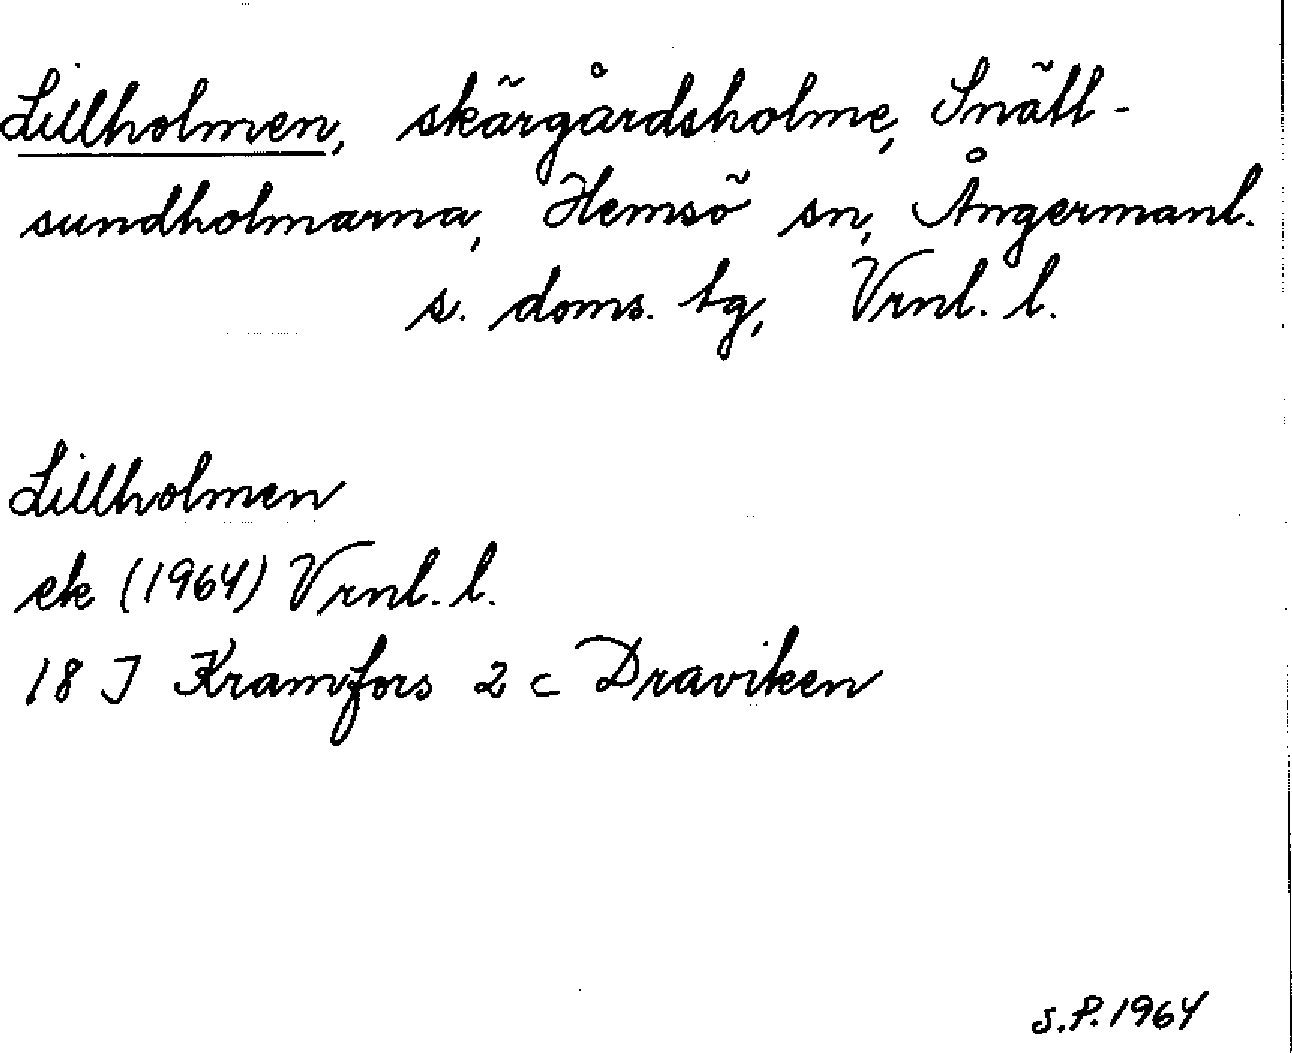 Lillholmen, skärgårdsholme, Snäll-
sundholmarna, Hemsö sn, Ångermanl.
s. doms. tg, Vrnl. l.
Lillholmen
ek (1964) Vrnl. l.
18 J Kramfors 2 c Draviken
S.P. 1964